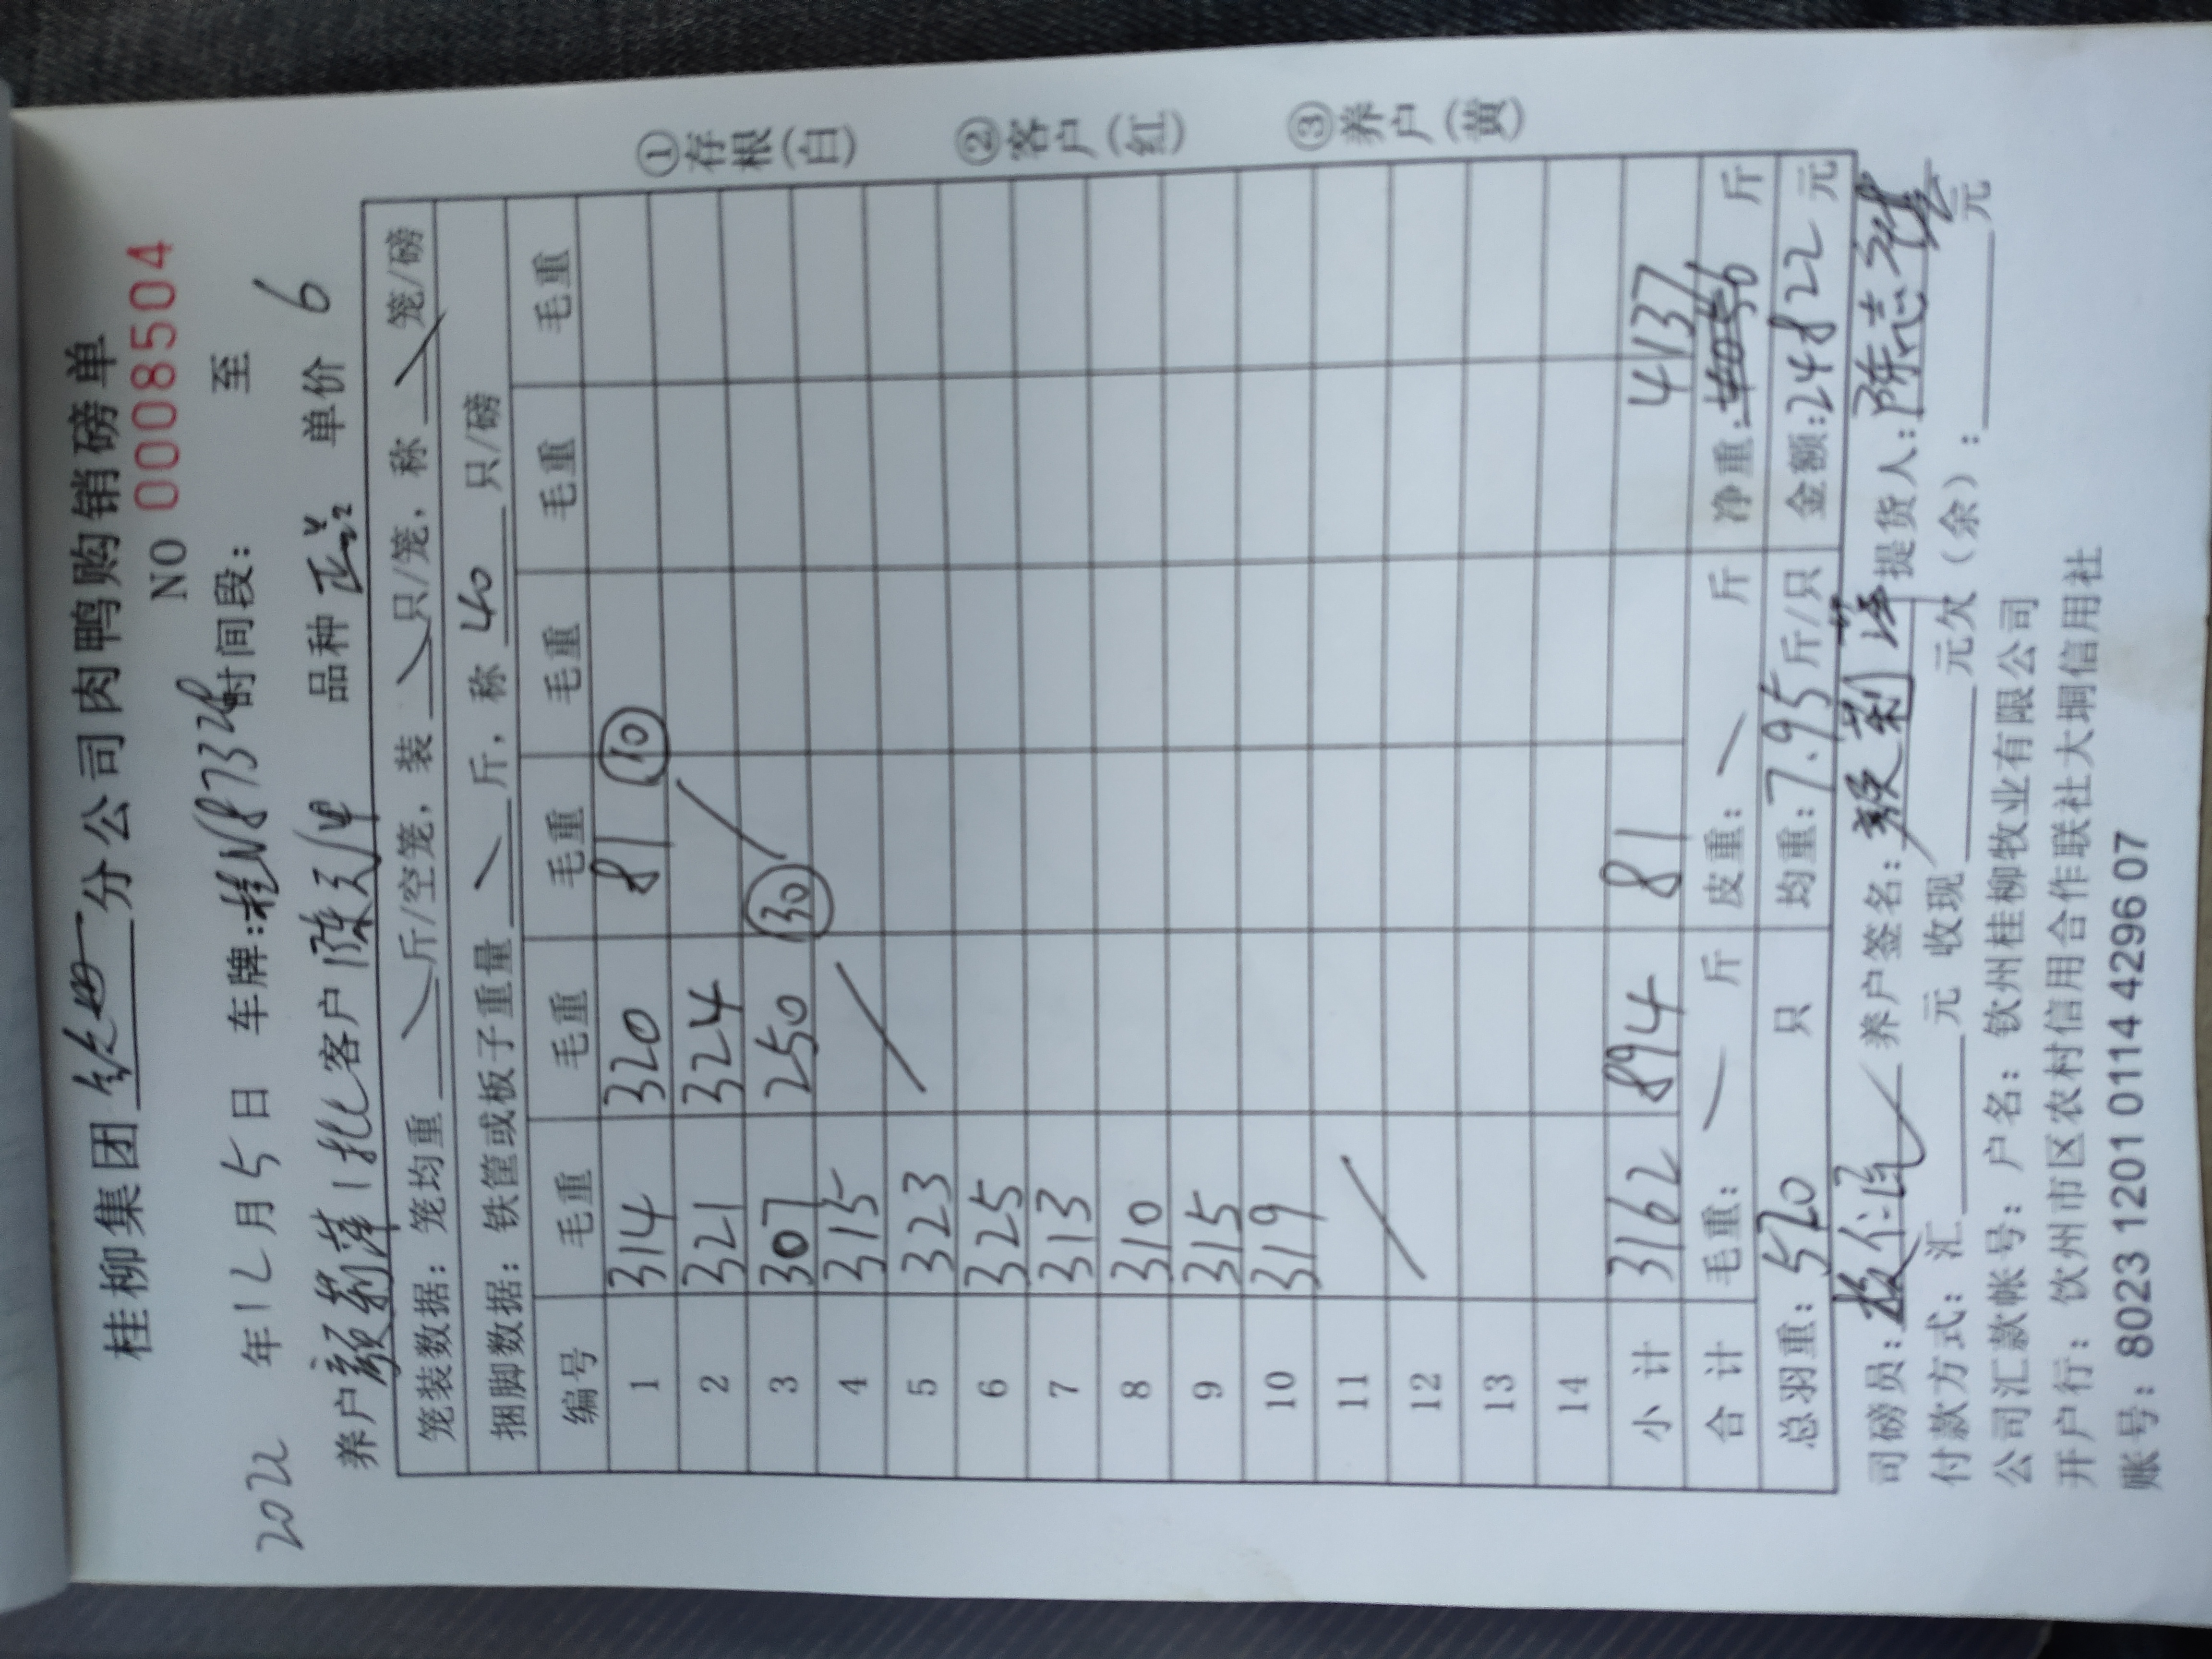 桂柳集团 分公司肉鸭购销磅单
NO 0008504
2022 年 12 月 5 日 车牌:桂N87328 时间段: 至
养户 颜莉萍 1批 客户 陈 品种 正 单价 6
笼装数据: 笼均重 斤/空笼, 装 只/笼, 称 笼/磅
捆脚数据: 铁筐或板子重量 斤, 称 40 只/磅
编号 毛重 毛重 毛重 毛重 毛重 毛重
1 314 320 81 ⑩
2 321 324
3 307 250 ㉚
4 315
5 323
6 325
7 313
8 310
9 315
10 319
11
12
13
14
小计 3162 894 81 4137
合计 毛重: 斤 皮重: 斤 净重: 斤
总羽重: 520 只 均重: 7.95 斤/只 金额: 24822 元
司磅员: 养户签名: 颜莉萍 提货人: 陈志
付款方式: 汇 元 收现 元欠(余): 元
公司汇款帐号: 户名: 钦州桂柳牧业有限公司
开户行: 钦州市区农村信用合作联社大垌信用社
账号: 8023 1201 0114 4296 07
①存根(白) ②客户(红) ③养户(黄)